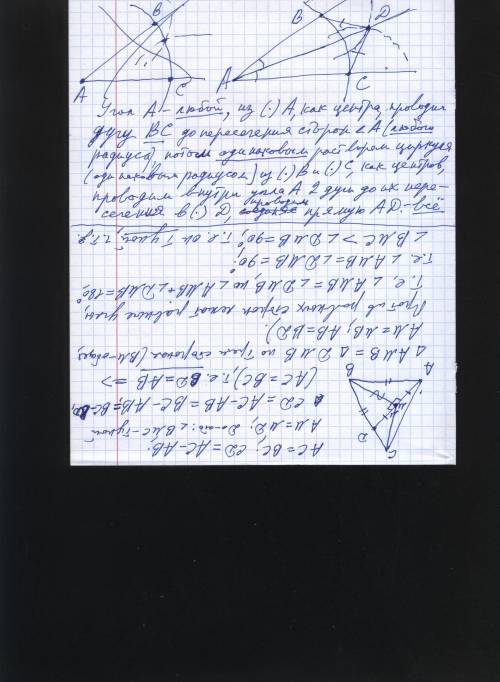 B
A
C
B
D
A
C
Угол А – любой, из (·) А, как центра, проводим
дугу BC до пересечения сторон ∠A (любого
радиуса), потом одинаковым раствором циркуля
(одинаковым радиусом) из (·) В и (·) С, как центров,
проводим внутри угла А 2 дуги до их пере-
сечения в (·) D, проводим прямую AD. – всё.
AC = BC; CD = AC - AB.
AM = MD; Док-ть: ∠BMC – тупой
CD = AC - AB = BC - AB; = BC - BD,
(AC = BC), т.е. BD = AB =>
Δ AMB = Δ DMB по трём сторонам (BM – общая,
AM = MD, AB = BD).
Против равных сторон лежат равные углы,
т.е. ∠AMB = ∠DMB, но ∠AMB + ∠DMB = 180°,
т.е. ∠AMB = ∠DMB = 90°;
∠BMC > ∠DMB = 90°, т.е. он тупой, ч.т.д.
A
B
C
D
M